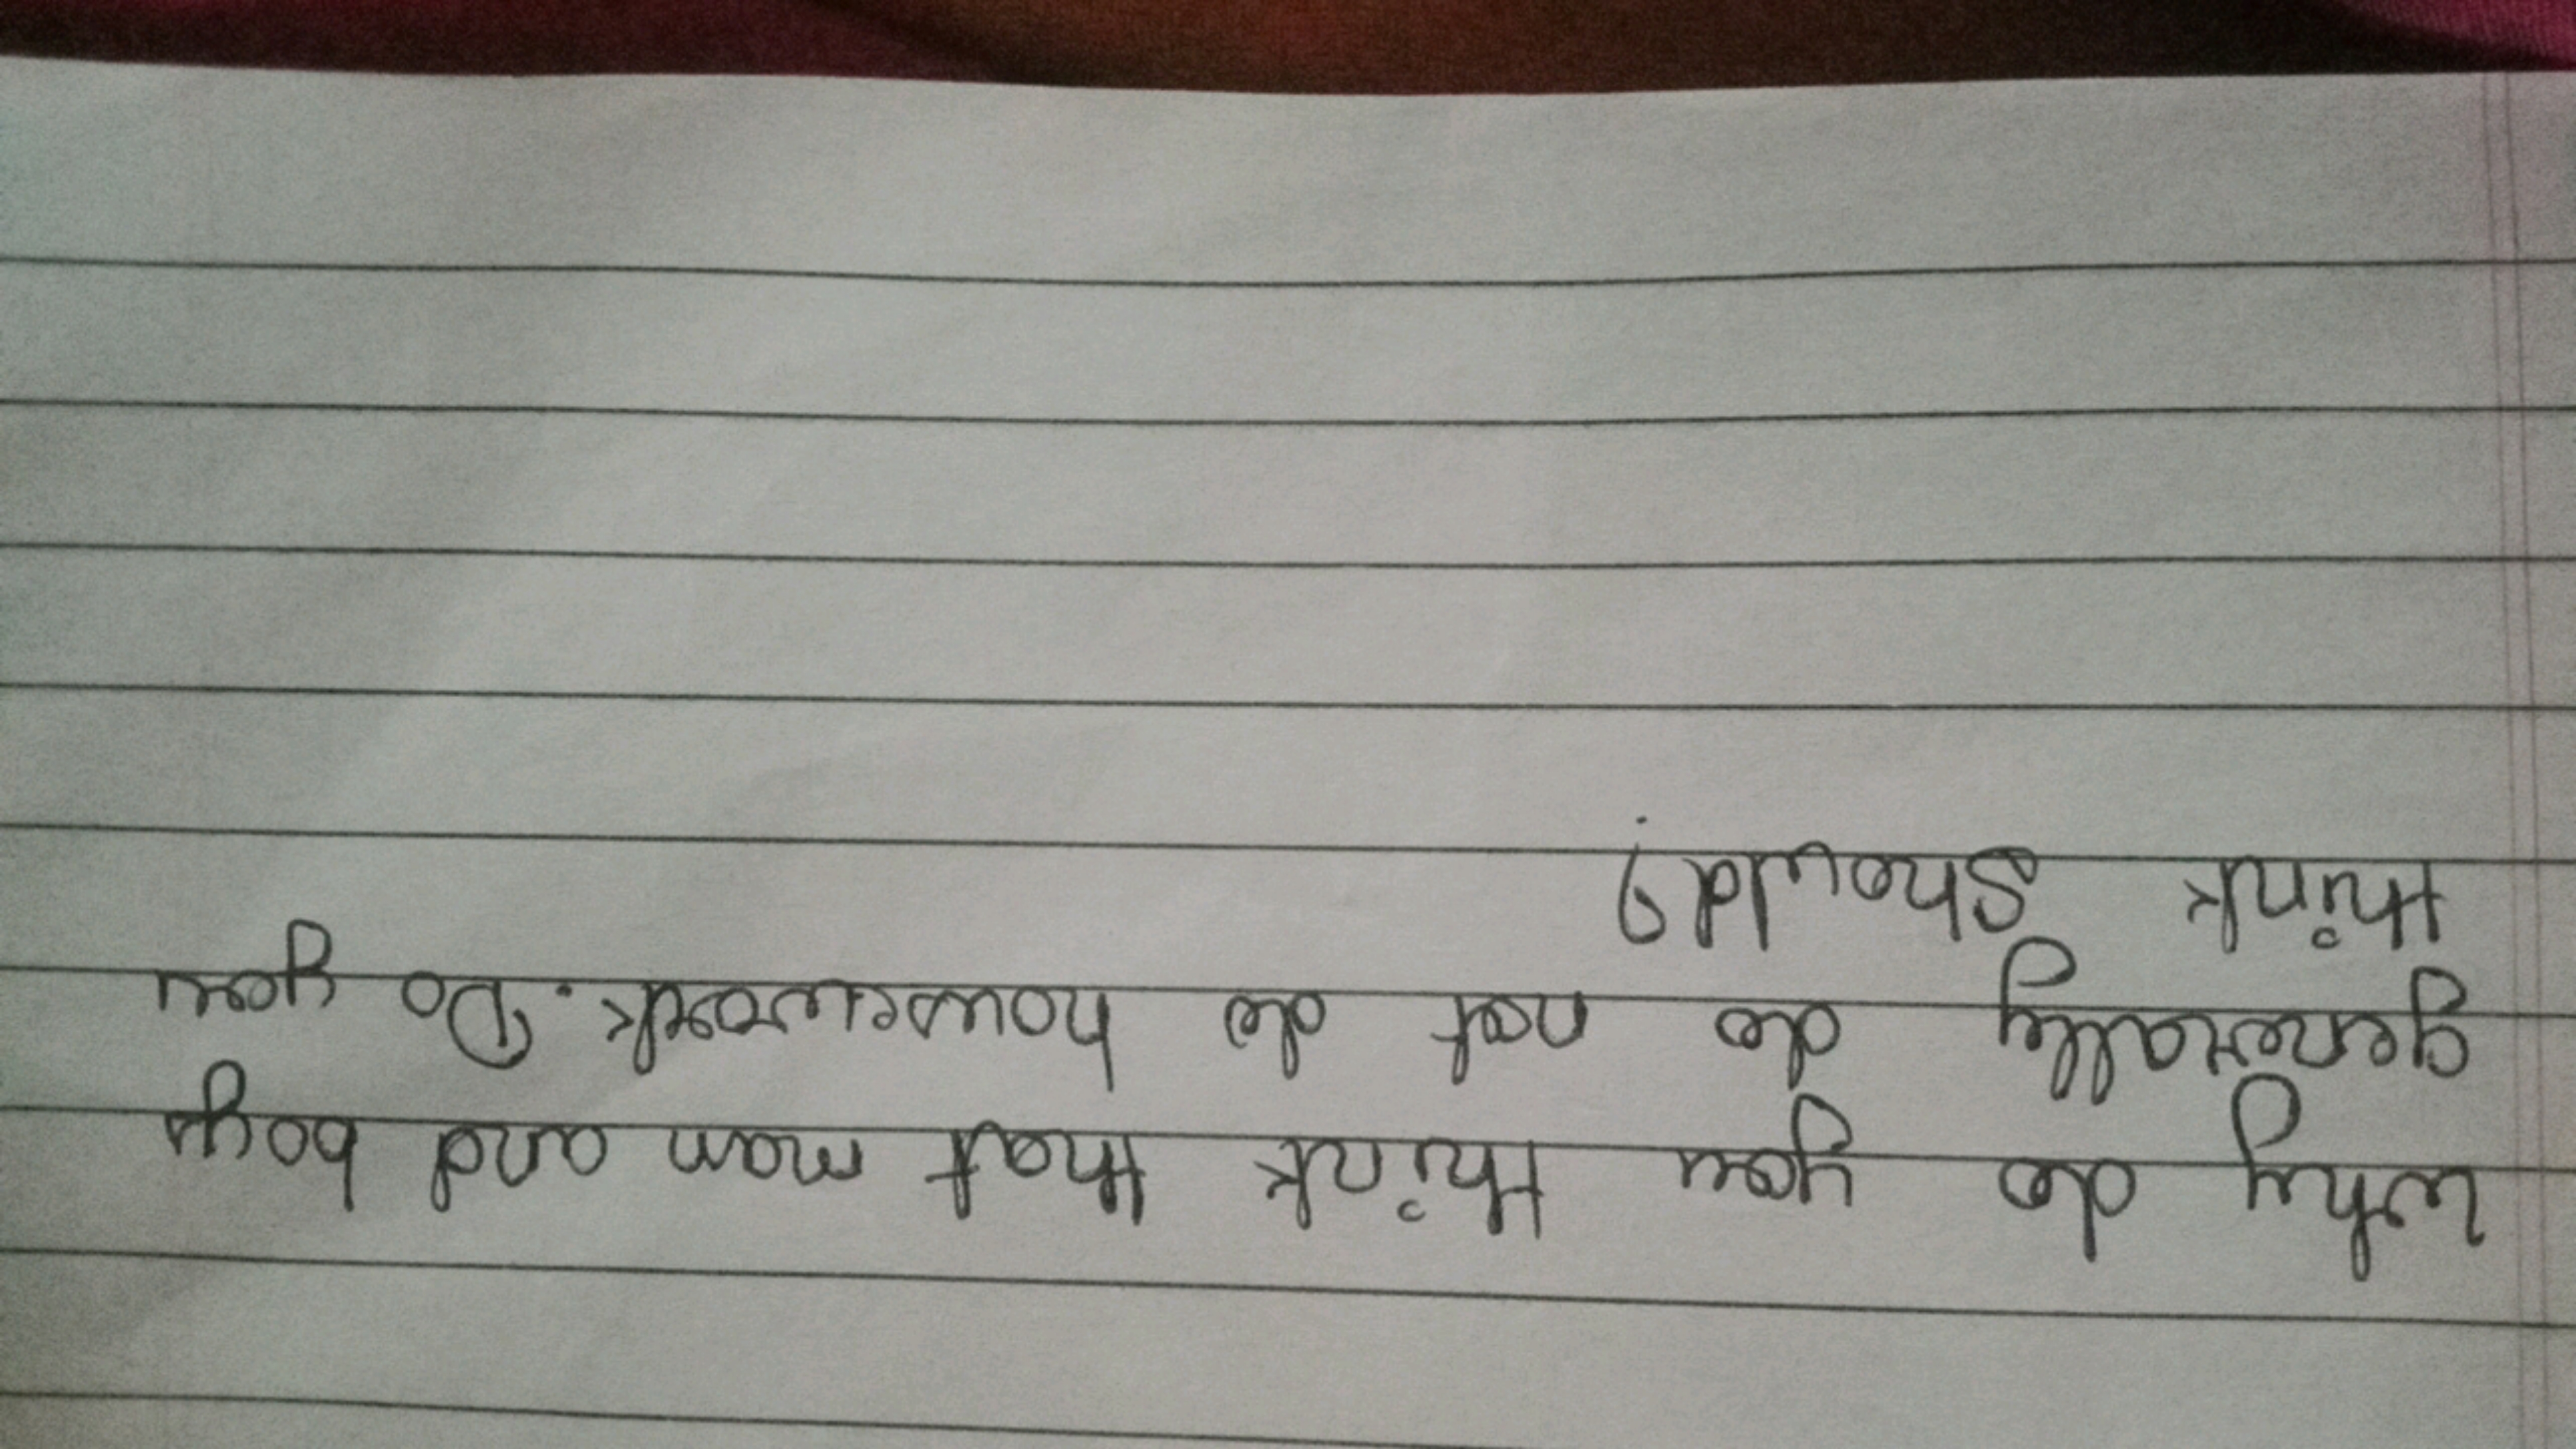 why do you think that man and boys
generally do not do housework. Do you
think should?